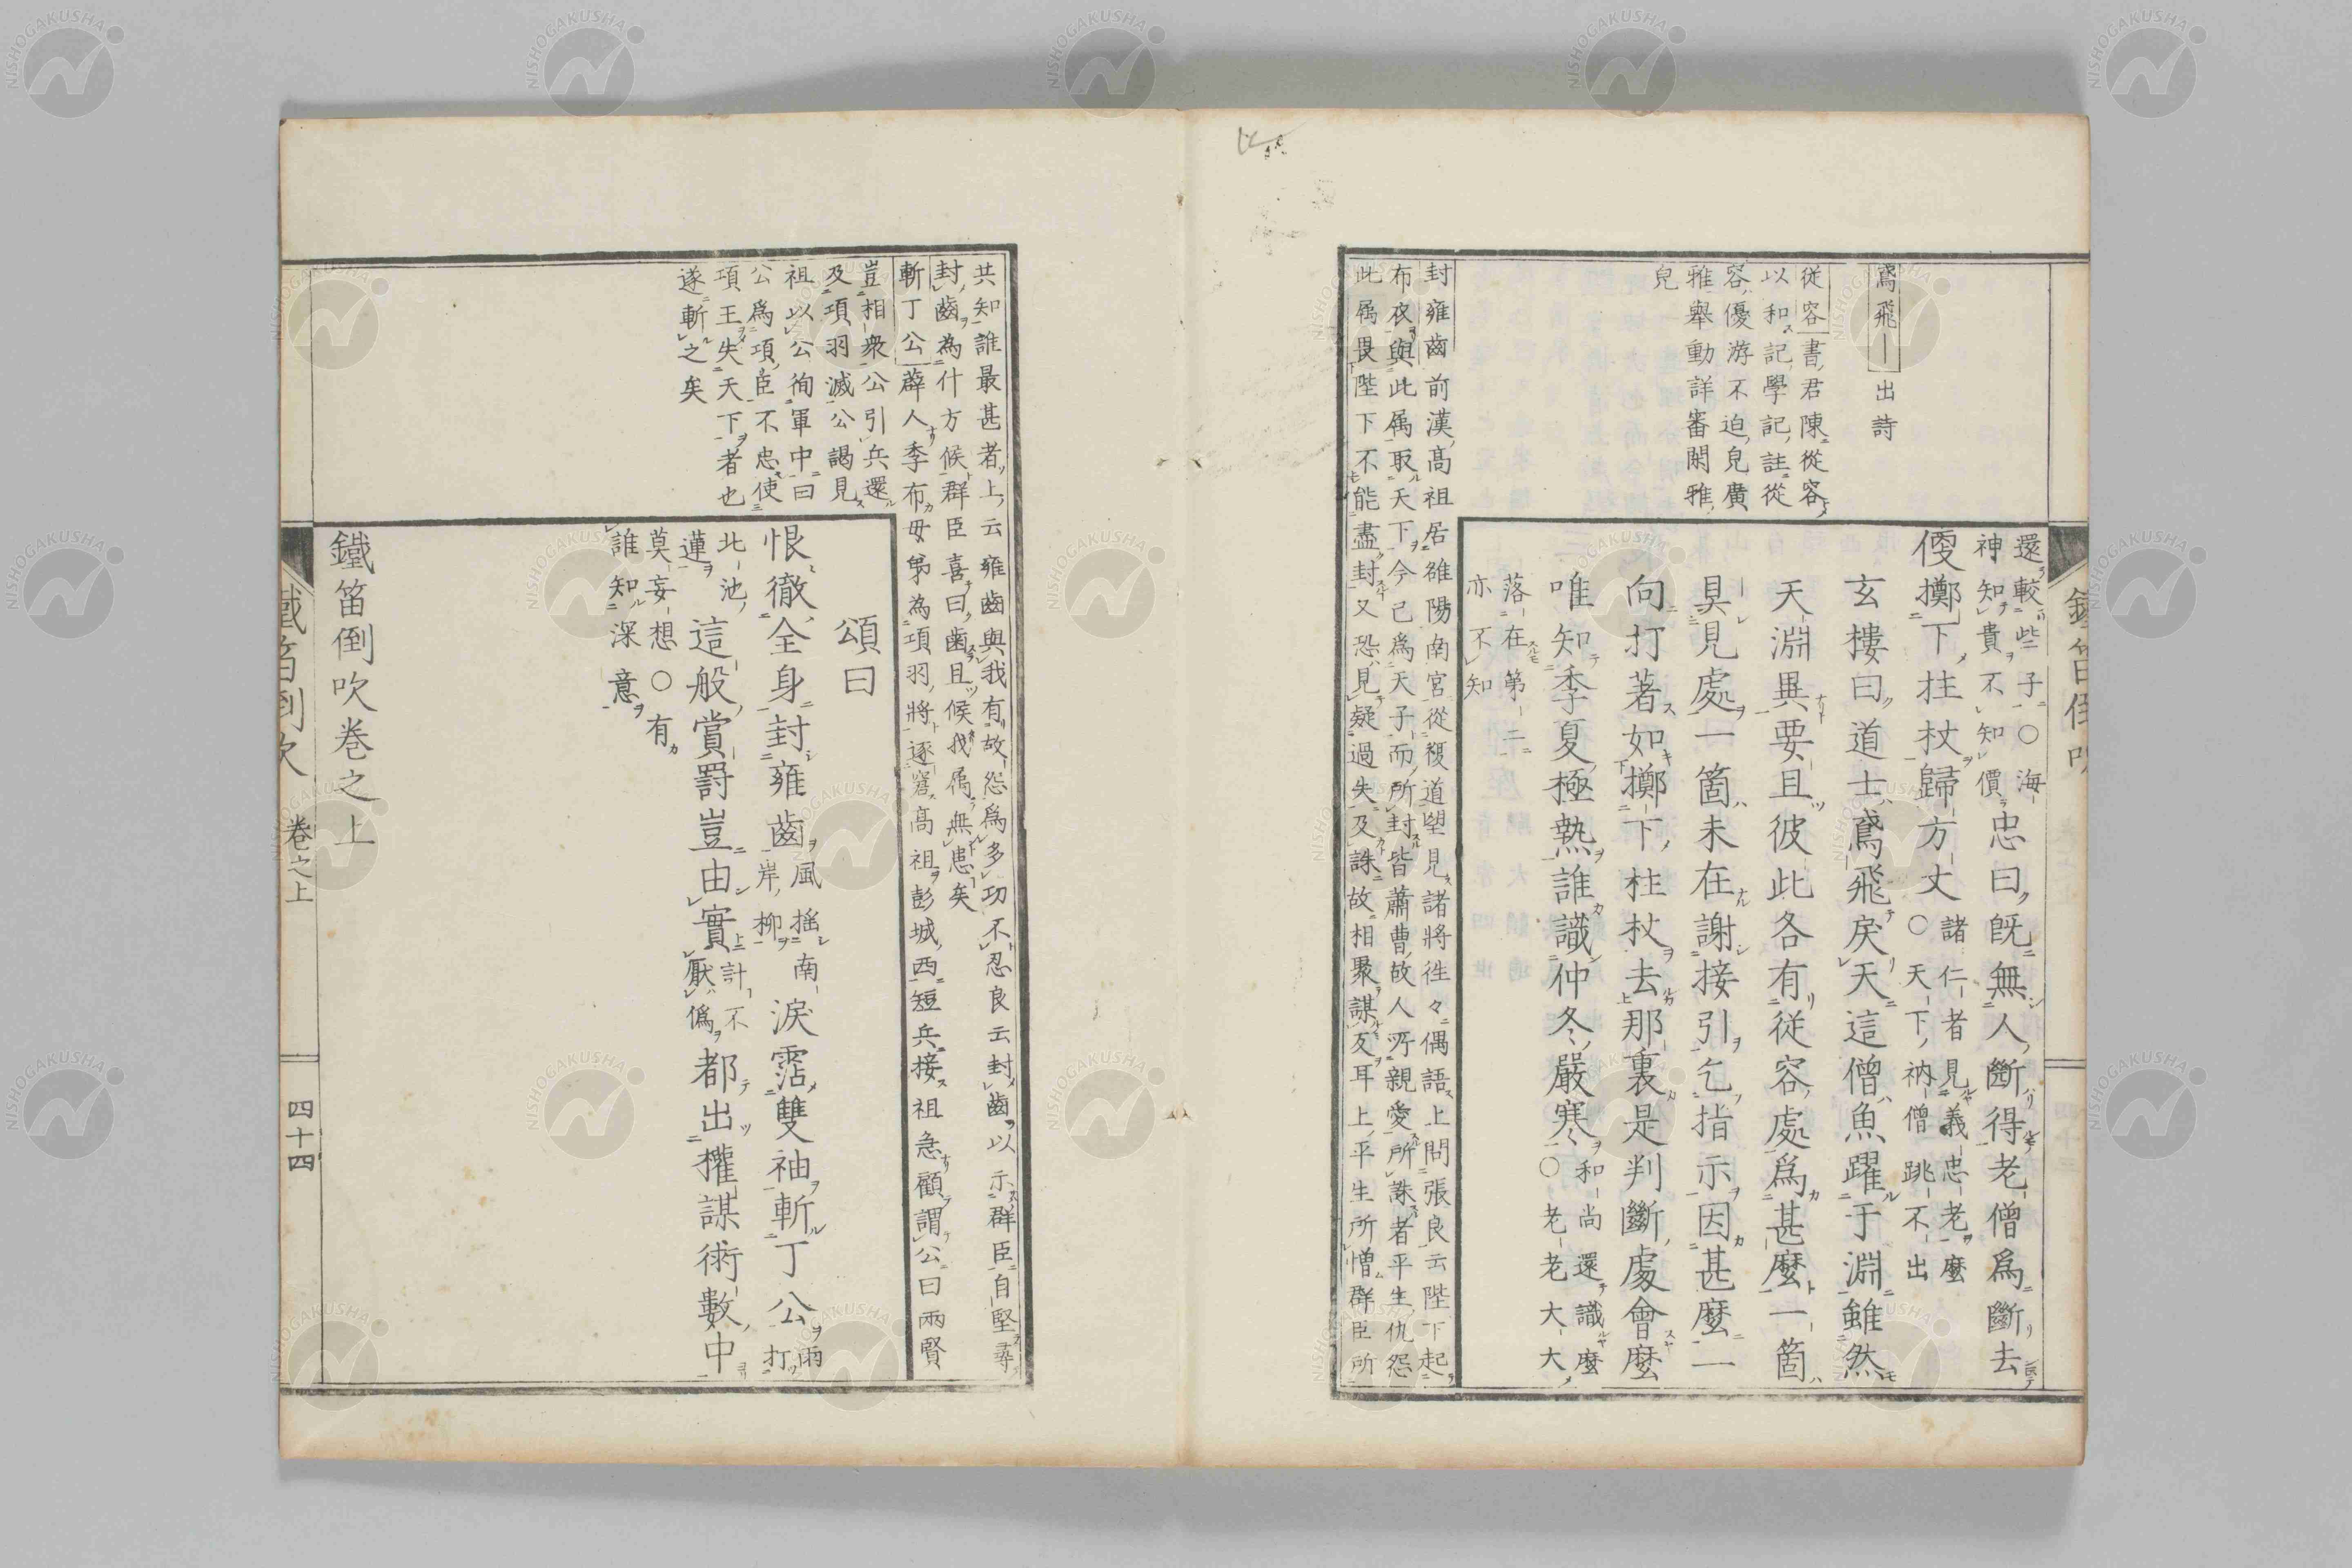 鳶飛―出詩
從容書君陳從容
以和記學記註從
容優游不迫皃廣
雅舉動詳審閑雅
皃
還較些子○海
神知貴不知價
忠曰既無人斷得老僧爲斷去
便擲下柱杖歸方丈
諸仁者見義忠老麼
○天下衲僧跳不出
玄樓曰道士鳶飛戾天這僧魚躍于淵雖然
天淵異要且彼此各有從容處爲甚麼一箇
具見處一箇未在謝接引乞指示因甚麼一
向打著如擲下柱杖去那裏是判斷處會麼
唯知季夏極熱誰識仲冬嚴寒
和尚還識麼
○老老大大
落在第二
亦不知
封雍齒前漢高祖居雒陽南宮從複道望見諸將往々偶語上問張良云陛下起
布衣與此属取天下今已爲天子而所封皆蕭曹故人所親愛所誅者平生仇怨
此属畏陛下不能盡封又恐見疑過失及誅故相聚謀反耳上平生所憎群臣所
鐵笛倒吹
共知誰最甚者上云雍齒與我有故怨爲多功不忍良云封齒以示群臣自堅尋
封齒為什方候群臣喜曰齒且候我属無患矣
斬丁公薜人季布母弟為項羽將逐窘高祖彭城西短兵接祖急顧謂公曰兩賢
豈相衆公引兵還
及項羽滅公謁見
祖以公徇軍中曰
公爲項臣不忠使
項王失天下者也
遂斬之矣
頌曰
恨徹全身封雍齒
風搖南
岸柳
淚霑雙袖斬丁公
雨打
北池
蓮
這般賞罰豈由實
計不
厭僞
都出權謀術數中
莫妄想○有
誰知深意
鐵笛倒吹卷之上
鐵笛倒吹
卷之上
四十四
NISHOGAKUSHA